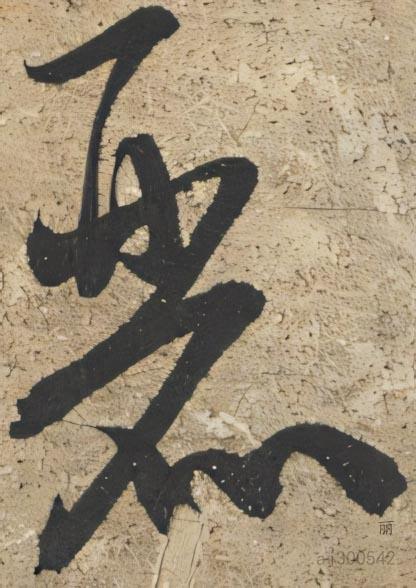 麗
丽
a-j300542